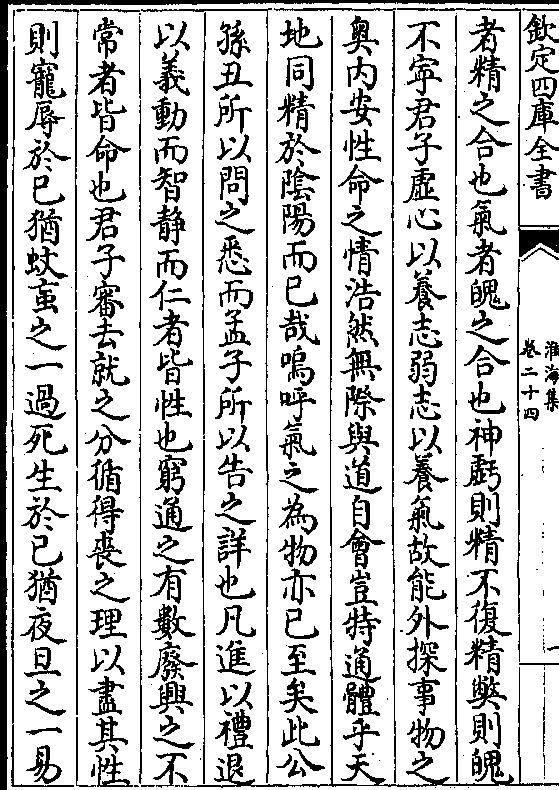 欽定四庫全書
淮海集
卷二十四
一
者精之合也氣者魄之合也神虧則精不復精弊則魄
不寧君子虛心以養志弱志以養氣故能外探事物之
奥内安性命之情浩然無際與道自會豈特通體乎天
地同精於陰陽而已哉嗚呼氣之為物亦已至矣此公
孫丑所以問之悉而孟子所以告之詳也凡進以禮退
以義動而智静而仁者皆性也窮通之有數廢興之不
常者皆命也君子審去就之分循得喪之理以盡其性
則寵辱於已猶蚊䖟之一過死生於已猶夜旦之一易